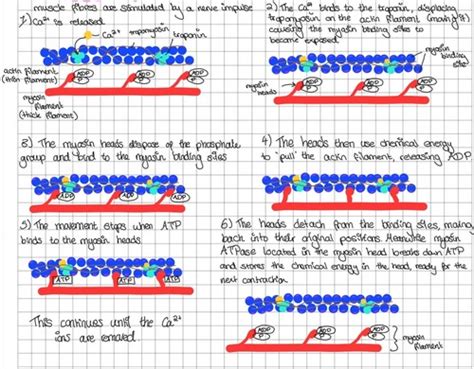 muscle fibres are stimulated by a nerve impulse
1) Ca²⁺ is released
Ca²⁺ tropomyosin troponin
actin filament
(thin filament)
ADP
P
ADP
P
ADP
P
myosin
filament
(thick filament)
2) The Ca²⁺ binds to the troponin, displacing
tropomyosin on the actin filament (moving it)
causing the myosin binding sites to
become exposed
myosin
binding
sites
myosin
heads
ADP
P
ADP
P
ADP
P
3) The myosin heads dispose of the phosphate
group and bind to the myosin binding sites
ADP
ADP
ADP
4) The heads then use chemical energy
to 'pull' the actin filament, releasing ADP
5) The movement stops when ATP
binds to the myosin heads
ATP
ATP
ATP
This continues until the Ca²⁺
ions are
6) The heads detach from the binding sites,
back into their original positions. Meanwhile myosin
ATPase located in the myosin head breaks down ATP
and stores the chemical energy in the head, ready for the
next contraction
ADP
P
ADP
P
ADP
P
myosin
filament